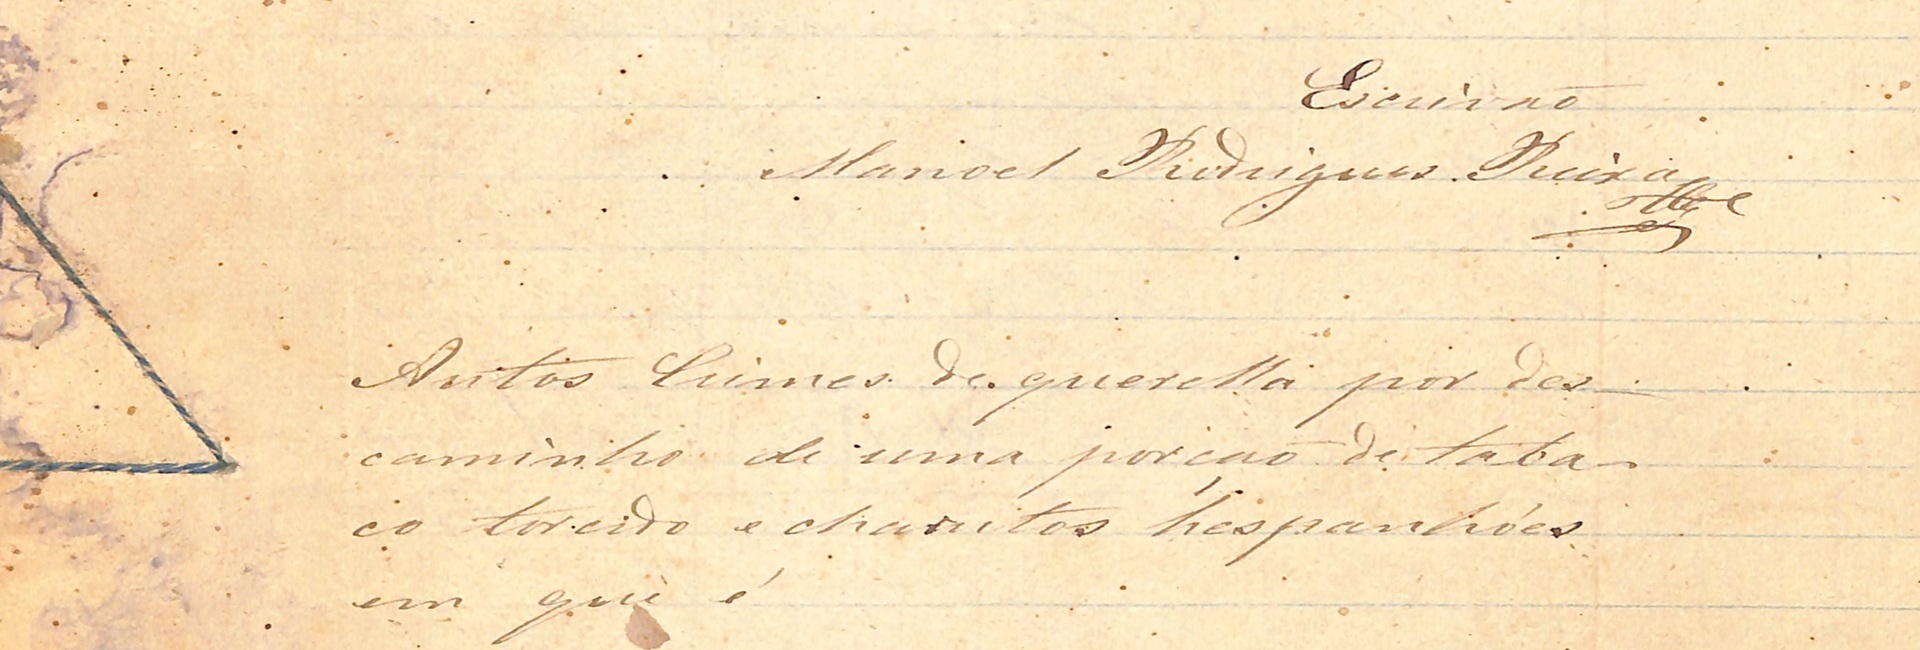 Escrivaõ
Manoel Rodrigues
Autos Crimes de querella por des-
caminho de uma porcaõ de taba-
co torcido e charutos hespanhóes
em que é